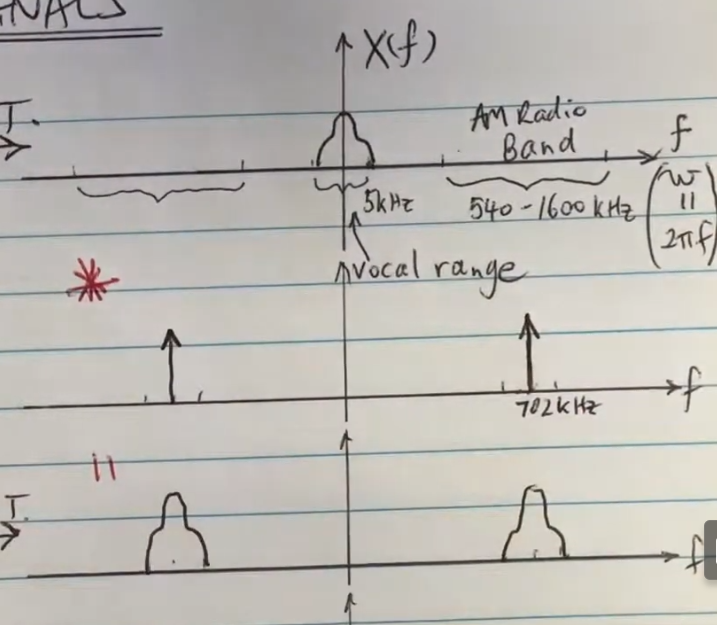 X(f)
T.
AM Radio
Band
f
5kHz
540-1600 kHz
(w
=
2πf)
vocal range
*
702kHz
f
=
T.
f